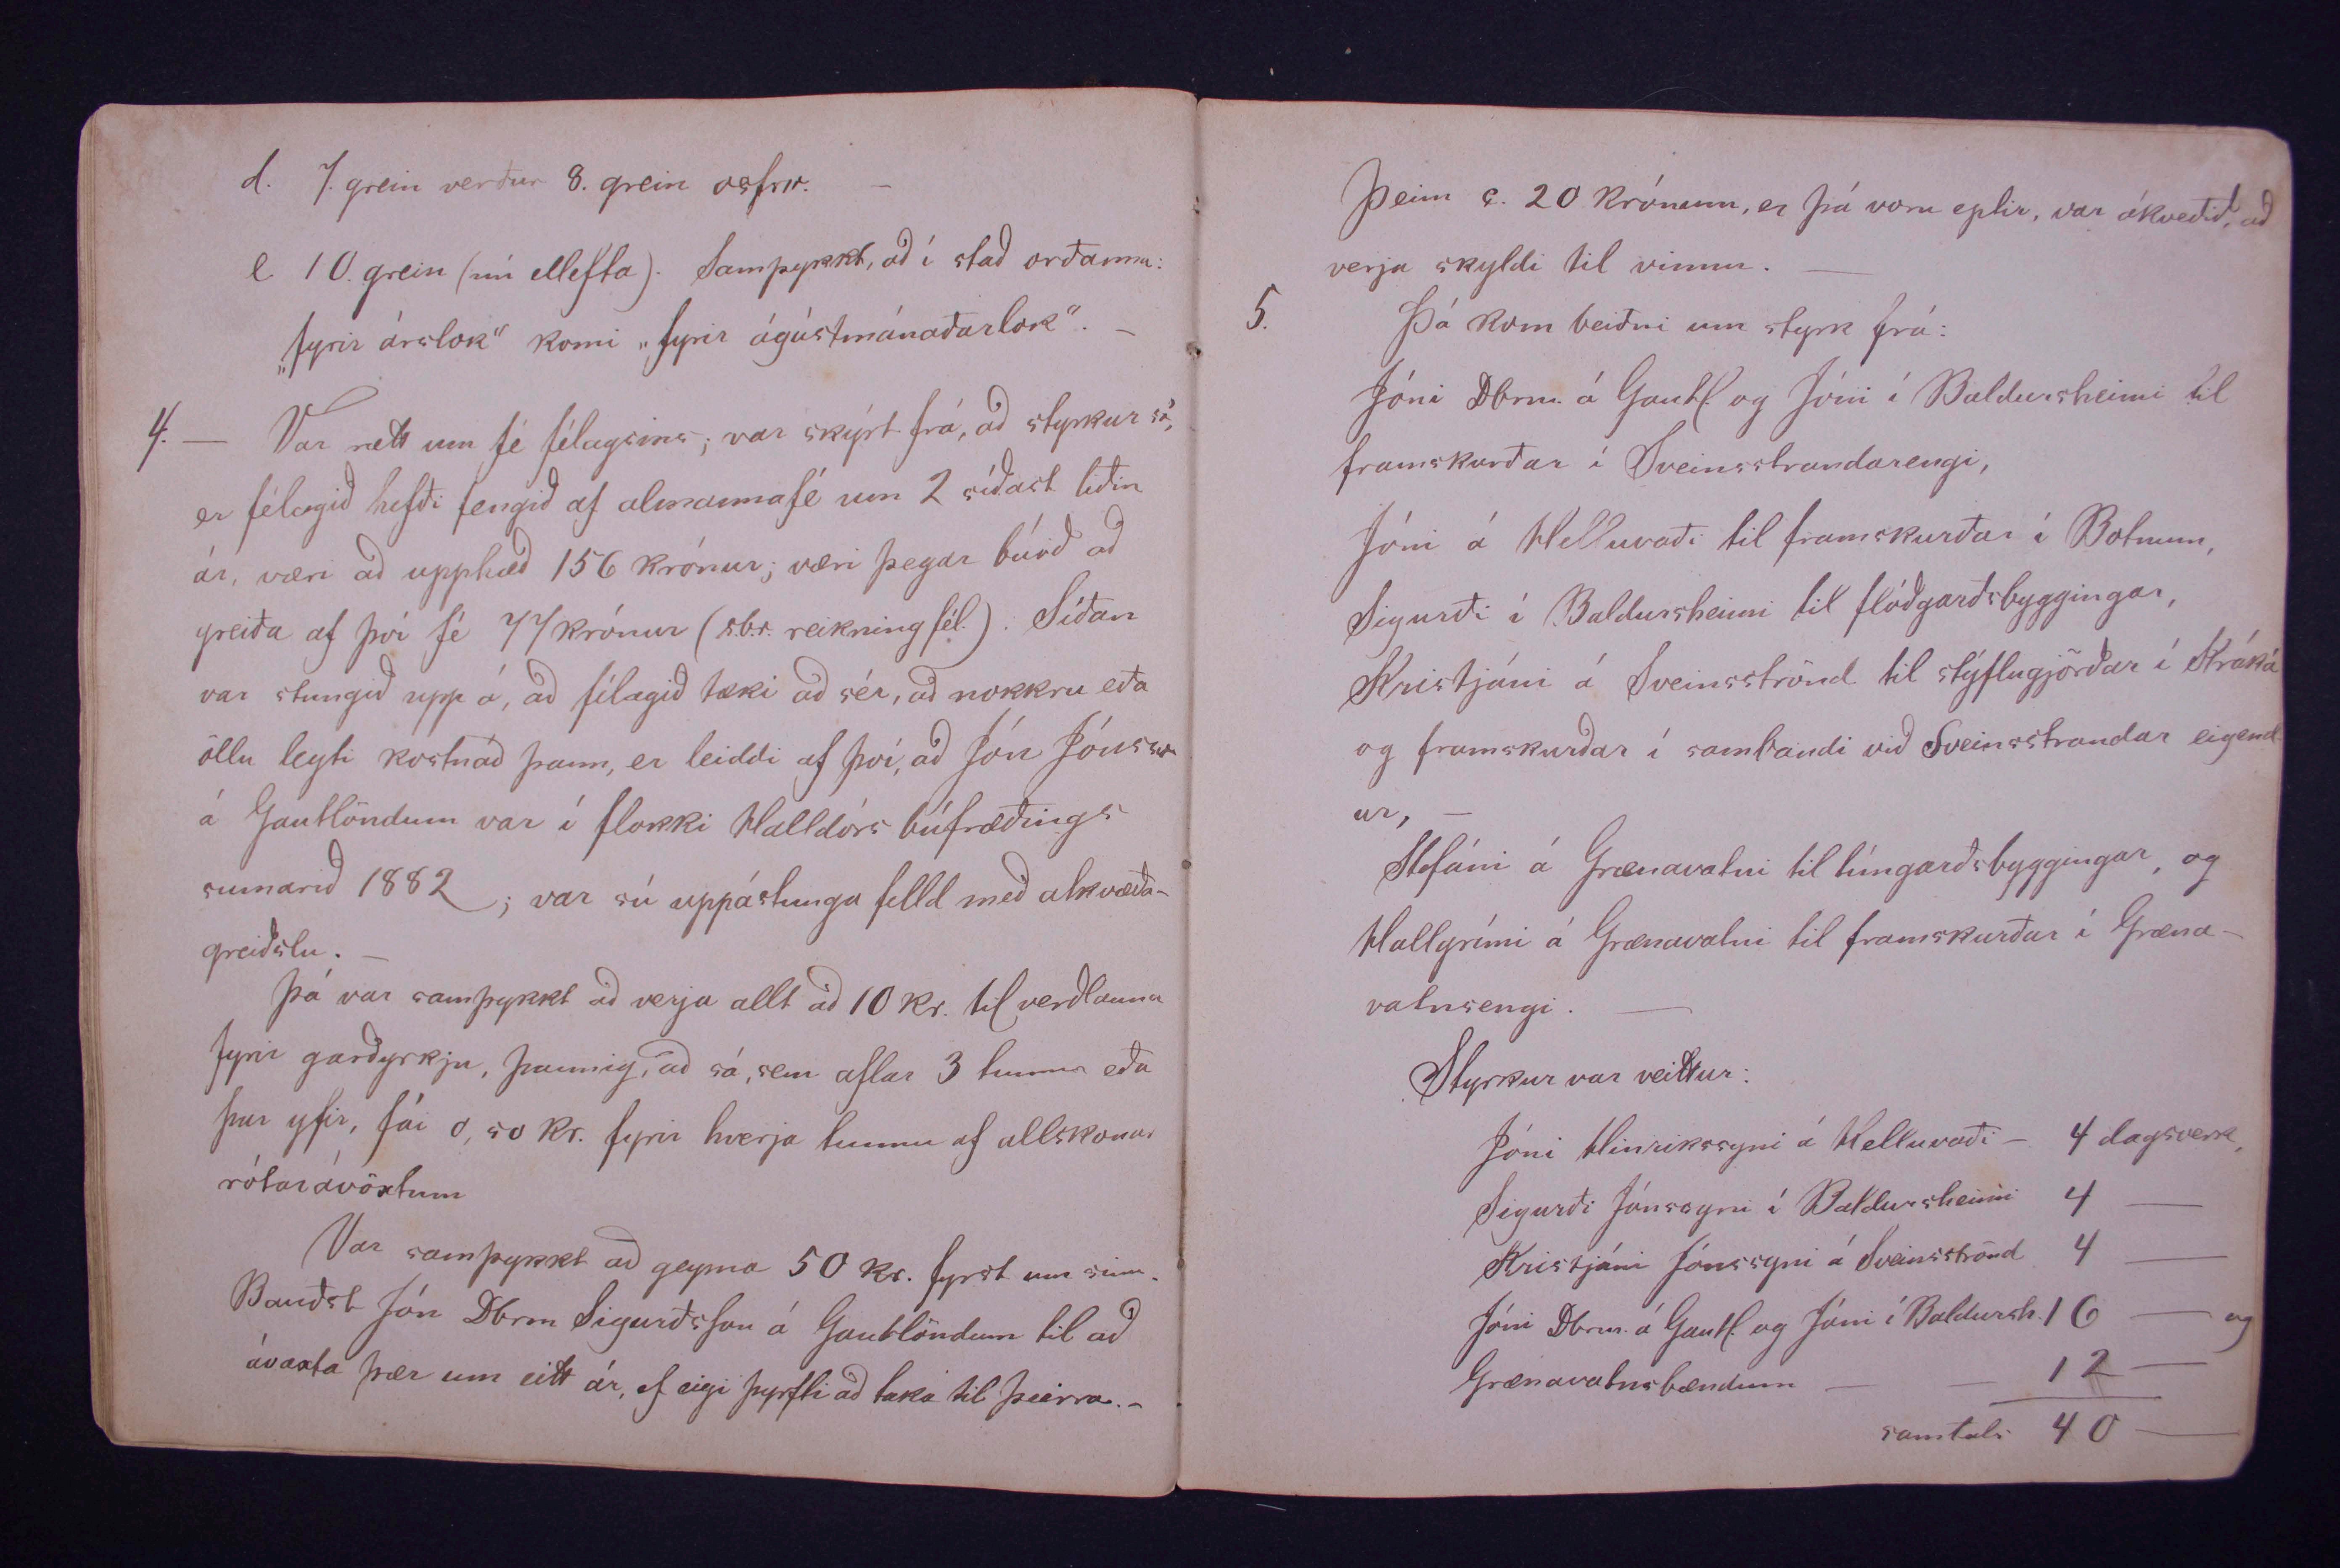 d. 7. grein verður 8. grein osfrv. —
e 10. grein (nú ellefta). Samþykkt, að í stað orðanna:
„fyrir árslok“ komi „fyrir ágústmánaðarlok“. —
4. — Var rætt um fé félagsins; var skýrt frá, að styrkur sá,
er félagið hefði fengið af almannafé um 2 síðast liðin
ár, væri að upphæð 156 krónur; væri þegar búið að
greiða af því fé 77 krónur (sbr. reikning fél.). Síðan
var stungið upp á, að félagið tæki að sér, að nokkru eða
öllu leyti kostnað þann, er leiddi af því, að Jón Jónsson
á Gautlöndum var í flokki Halldórs búfræðings
sumarið 1882; var sú uppástunga felld með atkvæða-
greiðslu. —
Þá var samþykkt að verja allt að 10 kr. til verðlauna
fyrir garðyrkju, þannig, að sá, sem aflar 3 tunnur eða
þar yfir, fái 0,50 kr. fyrir hverja tunnu af allskonar
rótarávöxtum
Var samþykkt að geyma 50 kr. fyrst um sinn.
Bauðst Jón Dbrm Sigurðsson á Gautlöndum til að
ávaxta þær um eitt ár, ef eigi þyrfti að taka til þeirra. –
Þeim c. 20 krónum, er þá voru eptir, var ákveðið, að
verja skyldi til vinnu. —
5. Þá kom beiðni um styrk frá:
Jóni Dbrm. á Gautl. og Jóni í Baldursheimi til
framskurðar í Sveinsstrandarengi,
Jóni á Helluvaði til framskurðar í Botnum,
Sigurði í Baldursheimi til flóðgarðsbyggingar,
Kristjáni á Sveinsströnd til stýflugjörðar í Kráká
og framskurðar í sambandi við Sveinsstrandar eigend
ur, —
Stefáni á Grænavatni til túngarðsbyggingar, og
Hallgrími á Grænavatni til framskurðar í Græna-
vatnsengi. —
Styrkur var veittur:
Jóni Hinrikssyni á Helluvaði — 4 dagsverk,
Sigurði Jónssyni í Baldursheimi 4 —
Kristjáni Jónssyni á Sveinsströnd 4 —
Jóni Dbrm. á Gautl. og Jóni í Baldursh. 16 — og
Grænavatnsbændum — — 12 —
samtals 40 —